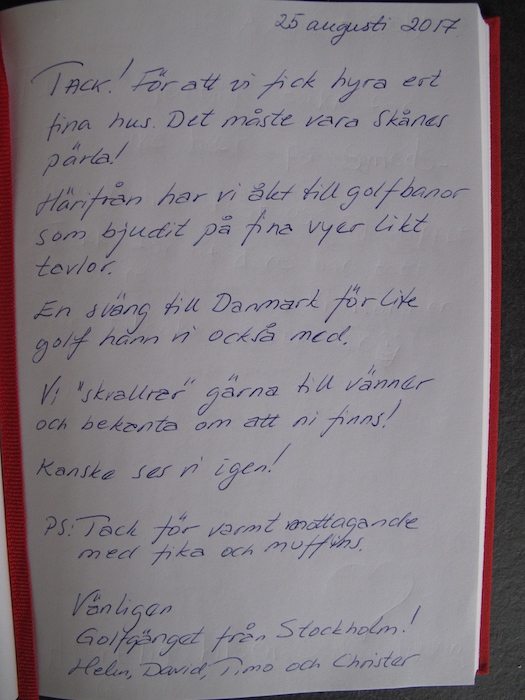 25 augusti 2017.
TACK! För att vi fick hyra ert
fina hus. Det måste vara Skånes
pärla!
Härifrån har vi åkt till golfbanor
som bjudit på fina vyer likt
tavlor.
En sväng till Danmark för lite
golf hann vi också med.
Vi "skvallrar" gärna till vänner
och bekanta om att ni finns!
Kanske ses vi igen!
PS: Tack för varmt mottagande
med fika och muffins.
Vänligen
Golfgänget från Stockholm!
Helen, David, Timo och Christer